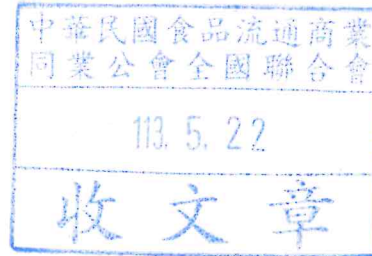 中華民國食品流通商業
同業公會全國聯合會
113. 5. 22
收文章